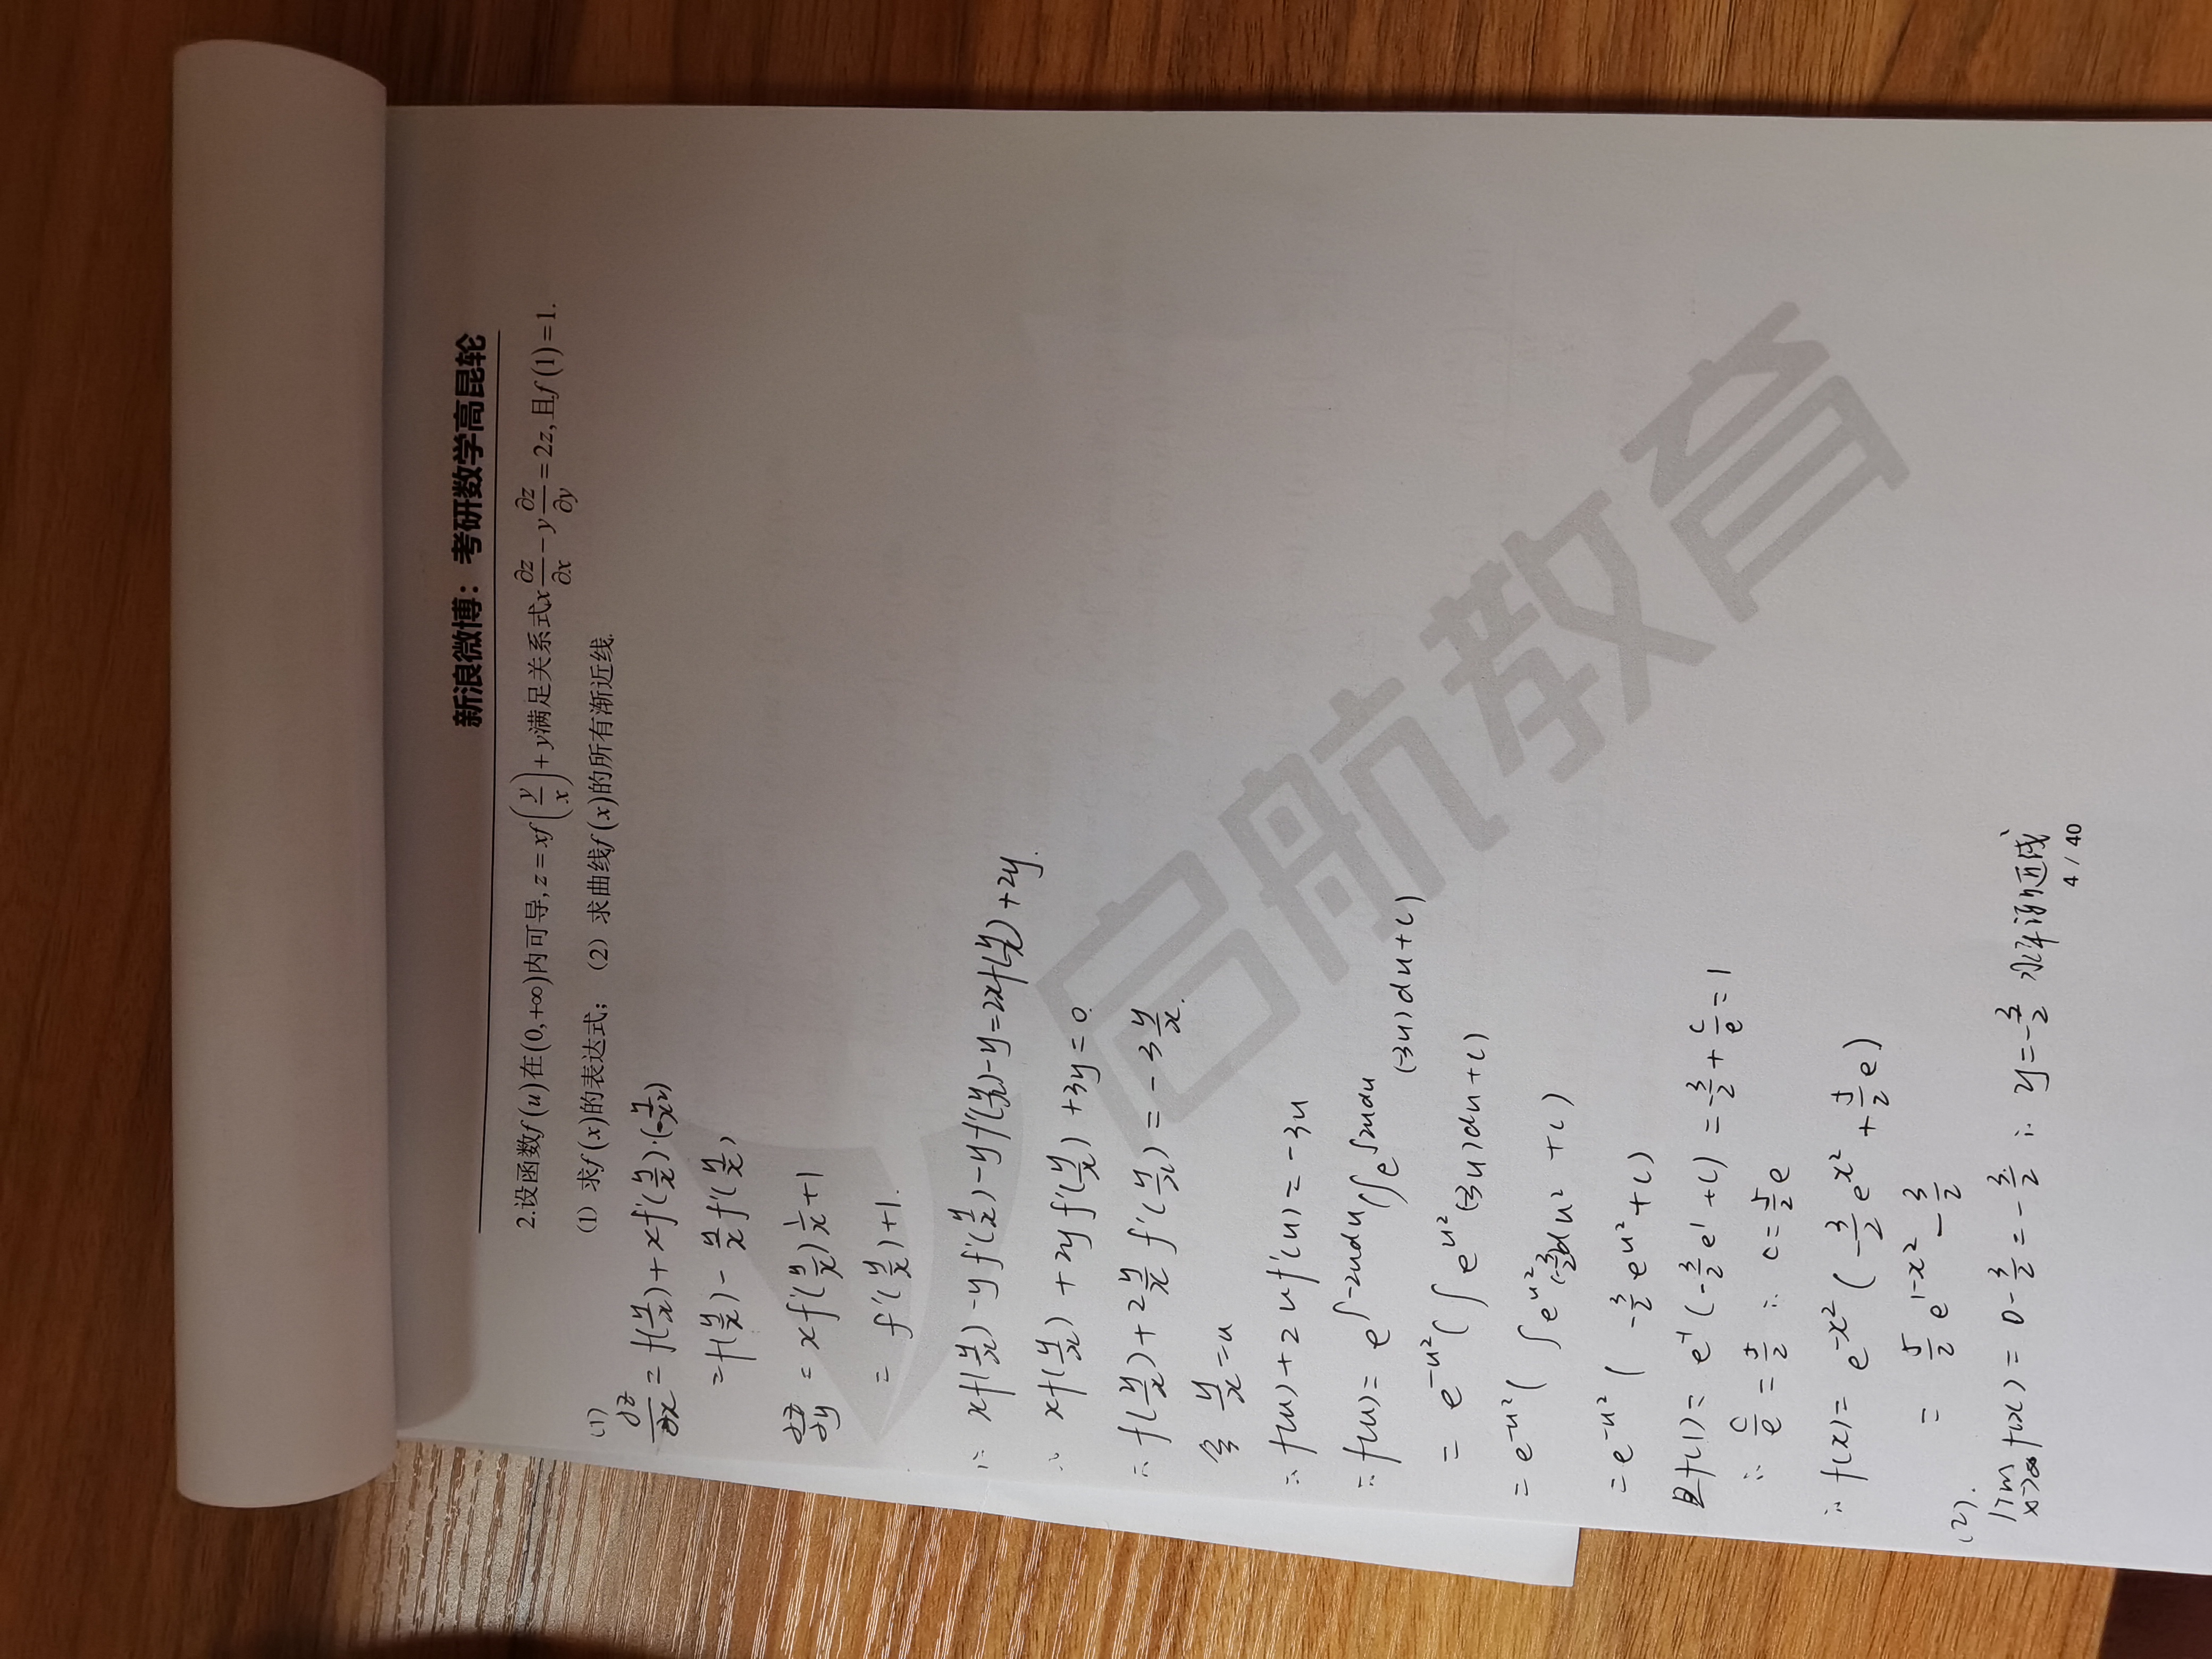 新浪微博：考研数学高昆轮
2.设函数f(u)在(0,+∞)内可导,z=xf(y/x)+y满足关系式x∂z/∂x-y∂z/∂y=2z,且f(1)=1.
(1) 求f(x)的表达式; (2) 求曲线f(x)的所有渐近线.
(1)
∂z/∂x=f(y/x)+xf'(y/x)·(-y/x²)
=f(y/x)-y/x f'(y/x)
∂z/∂y=xf'(y/x)1/x+1
=f'(y/x)+1.
∴ xf(y/x)-yf'(y/x)-yf'(y/x)-y=2xf(y/x)+2y.
∴ xf(y/x)+2yf'(y/x)+3y=0.
∴ f(y/x)+2y/x f'(y/x)=-3y/x.
令 y/x=u
∴ f(u)+2uf'(u)=-3u
∴ f(u)=e^∫-2udu(∫e^∫2udu(-3u)du+C)
=e^-u²(∫e^u²(-3u)du+C)
=e^-u²(∫e^u²(-3/2)du²+C)
=e^-u²(-3/2e^u²+C)
且f(1)=e^-1(-3/2e^1+C)=-3/2+C/e=1
∴ C/e=5/2 ∴ C=5/2e
∴ f(x)=e^-x²(-3/2e^x²+5/2e)
=5/2e^1-x²-3/2
(2).
lim x→∞ f(x)=0-3/2=-3/2 ∴ y=-3/2 水平渐近线
4 / 40
启航教育